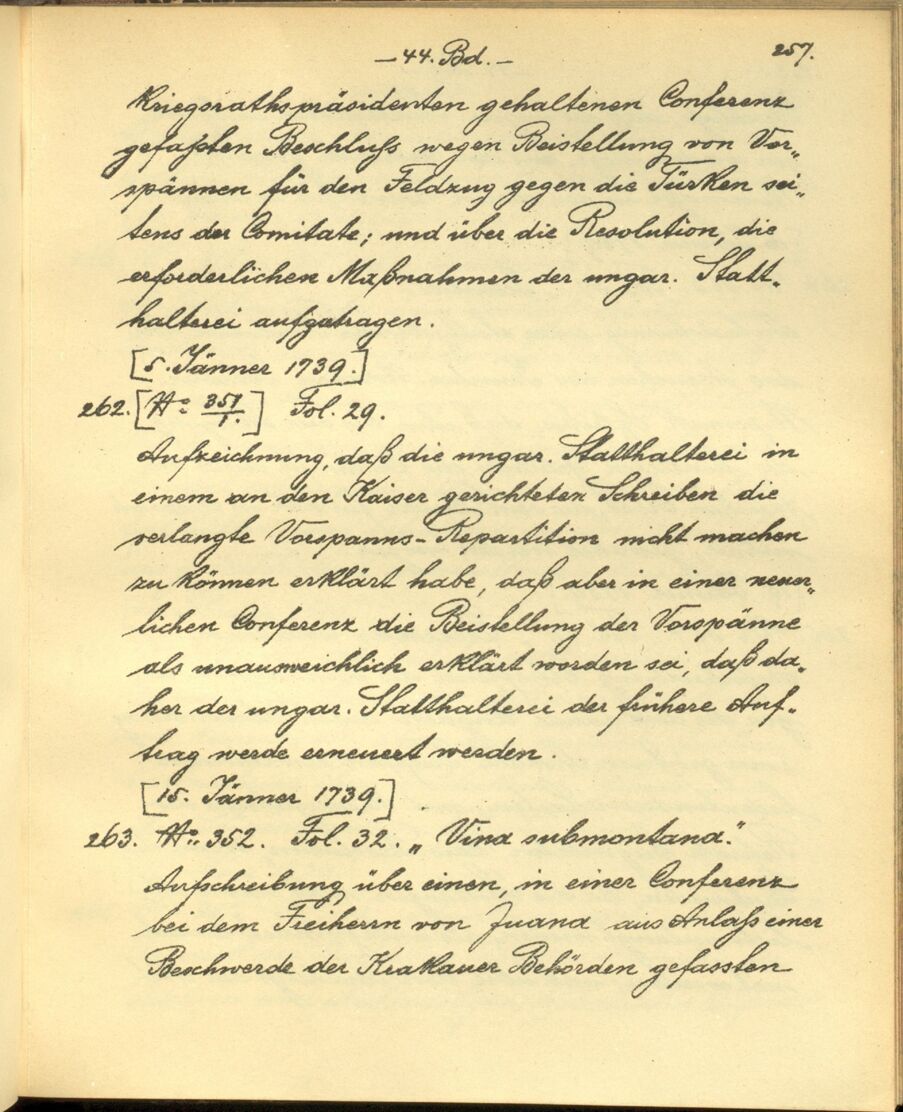 — 44. Bd. — 257.
Kriegsrathspräsidenten gehaltenen Conferenz
gefaßten Beschluß wegen Beistellung von Vor„
spännen für den Feldzug gegen die Türken sei„
tens der Comitate; und über die Resolution, die
erforderlichen Maßnahmen der ungar. Statt„
halterei aufgetragen.
[5. Jänner 1739.]
262. [No: 351/1.] Fol. 29.
Aufzeichnung, daß die ungar. Statthalterei in
einem an den Kaiser gerichteten Schreiben die
verlangte Vorspanns-Repartition nicht machen
zu können erklärt habe, daß aber in einer neuer„
lichen Conferenz die Beistellung der Vorspänne
als unausweichlich erklärt worden sei, daß da„
her der ungar. Statthalterei der frühere Auf„
trag werde erneuert werden.
[15. Jänner 1739.]
263. No: 352. Fol. 32. „Vina submontana."
Aufschreibung über einen, in einer Conferenz
bei dem Freiherrn von Juana aus Anlaß einer
Beschwerde der Krakauer Behörden gefassten